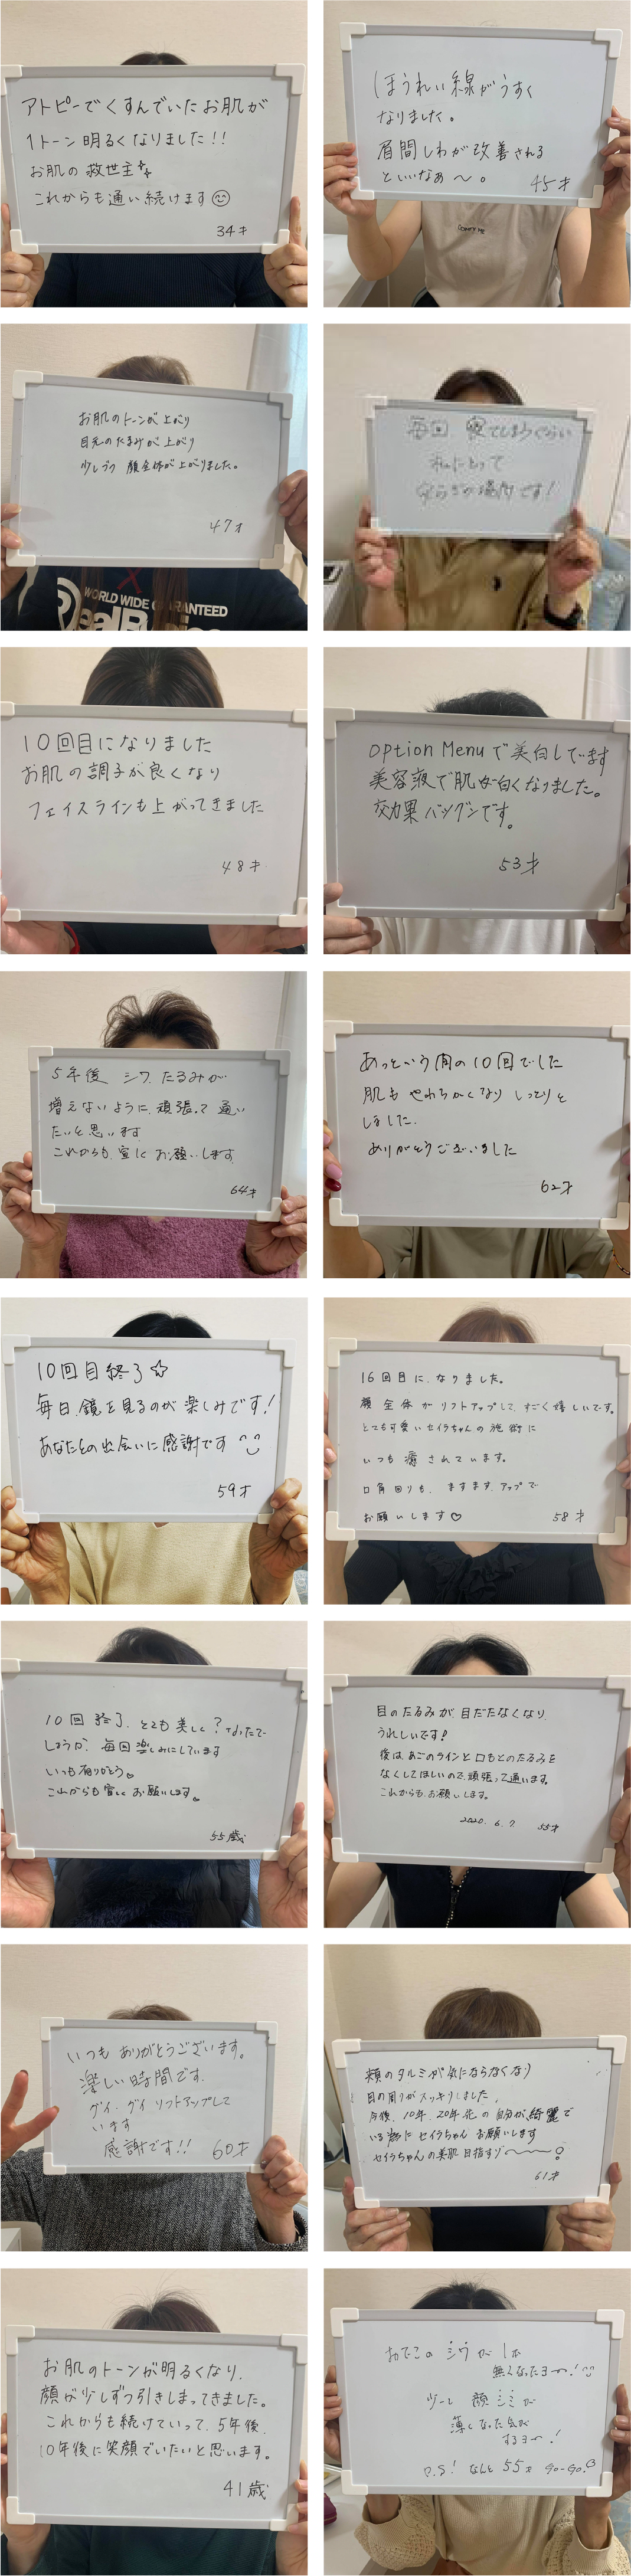 アトピーでくすんでいたお肌が
1トーン明るくなりました!!
お肌の救世主
これからも通い続けます
34才
ほうれい線がうすく
なりました。
眉間しわが改善される
といいなぁ〜。
45才
COMFY ME
お肌のトーンが上がり
目元のたるみが上がり
少しづつ 顔全体が上がりました。
47才
WORLD WIDE GUARANTEED
毎回、寝てしまうくらい
私にとって
安らぎの場所です!
10回目になりました
お肌の調子が良くなり
フェイスラインも上がってきました
48才
Option Menuで美白しています
美容液で肌が白くなりました。
効果バツグンです。
53才
5年後 シワ、たるみが
増えないように、頑張って通い
たいと思います
これからも、宜しくお願いします。
64才
あっという間の10回でした
肌も やわらかくなり しっとりと
しました。
ありがとうございました
62才
10回目終了☆
毎日、鏡を見るのが楽しみです!
あなたとの出会いに感謝です
59才
16回目に、なりました。
顔全体がリフトアップして、すごく嬉しいです。
とても可愛いセイラちゃんの施術に
いつも癒されています。
口角回りも、ますます、アップで
お願いします♡
58才
10回終了、とても美しく?なったで
しょうか、毎回楽しみにしています
いつも有りがとう♡
これからも宜しくお願いします。
55歳
目のたるみが、目だたなくなり、
うれしいです!
後は、あごのラインと口もとのたるみを
なくしてほしいので、頑張って通います。
これからも、お願いします。
2020. 6. 7. 55才
いつも ありがとうございます。
楽しい時間です。
グイ、グイ リフトアップして
います
感謝です!! 60才
頬のタルミが気にならなくなり
目の周りがスッキリしました。
今後、10年、20年先の自分が綺麗で
いる為に セイラちゃん お願いします
セイラちゃんの美肌目指すゾ〜〜!
61才
お肌のトーンが明るくなり、
顔が少しずつ引きしまってきました。
これからも続けていって、5年後、
10年後に笑顔でいたいと思います。
41歳
おでこの シワが 1本
無くなったヨ〜!
少〜し 顔シミが
薄くなった気が
するヨ〜!
P.S! なんと 55才 Go-Go!